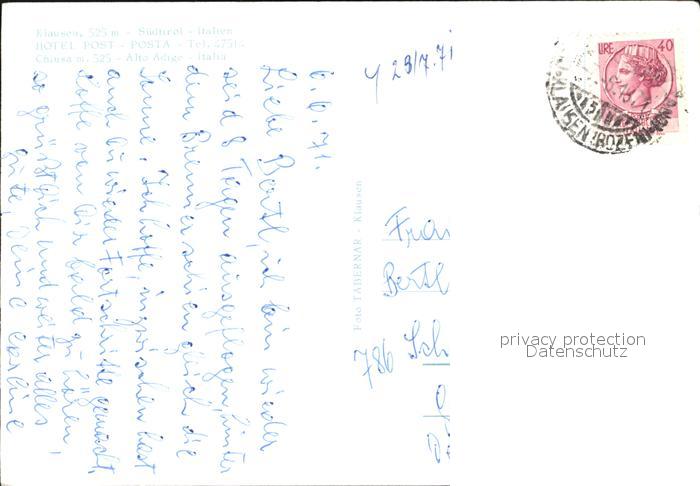 Klausen, 525 m - Südtirol - Italien
HOTEL POST - POSTA - Tel. 47514
Chiusa m. 525 - Alto Adige - Italia
6.6.71.
Liebe Bertl, ich bin wieder
seid 8 Tagen ausgeflogen, hinter
dem Brenner schien gleich die
Sonne. Ich hoffe, inzwischen hast
auch Du wieder Fortschritte gemacht.
Hoffe von Dir bald zu hören,
so grüßt Dich und weiter alles
Gute, Deine
Foto TABERNAR - Klausen
29/7.71
LIRE 40
KLAUSEN (BOZEN)
Frau
Bertl
786 Sch
privacy protection
Datenschutz